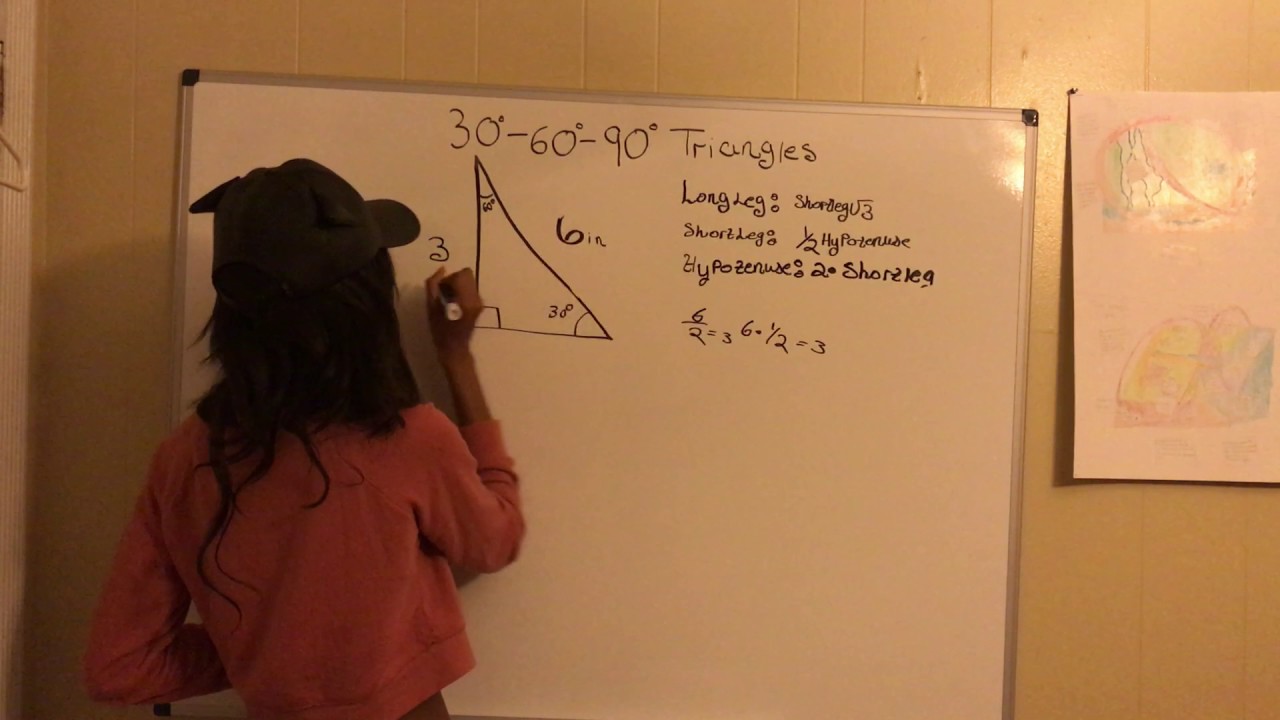 30°-60°-90° Triangles
LongLeg: Shortleg√3
ShortLeg: 1/2 Hypotenuse
Hypotenuse: 2• Shortleg
60°
6in
3
30°
6/2=3 6•1/2=3